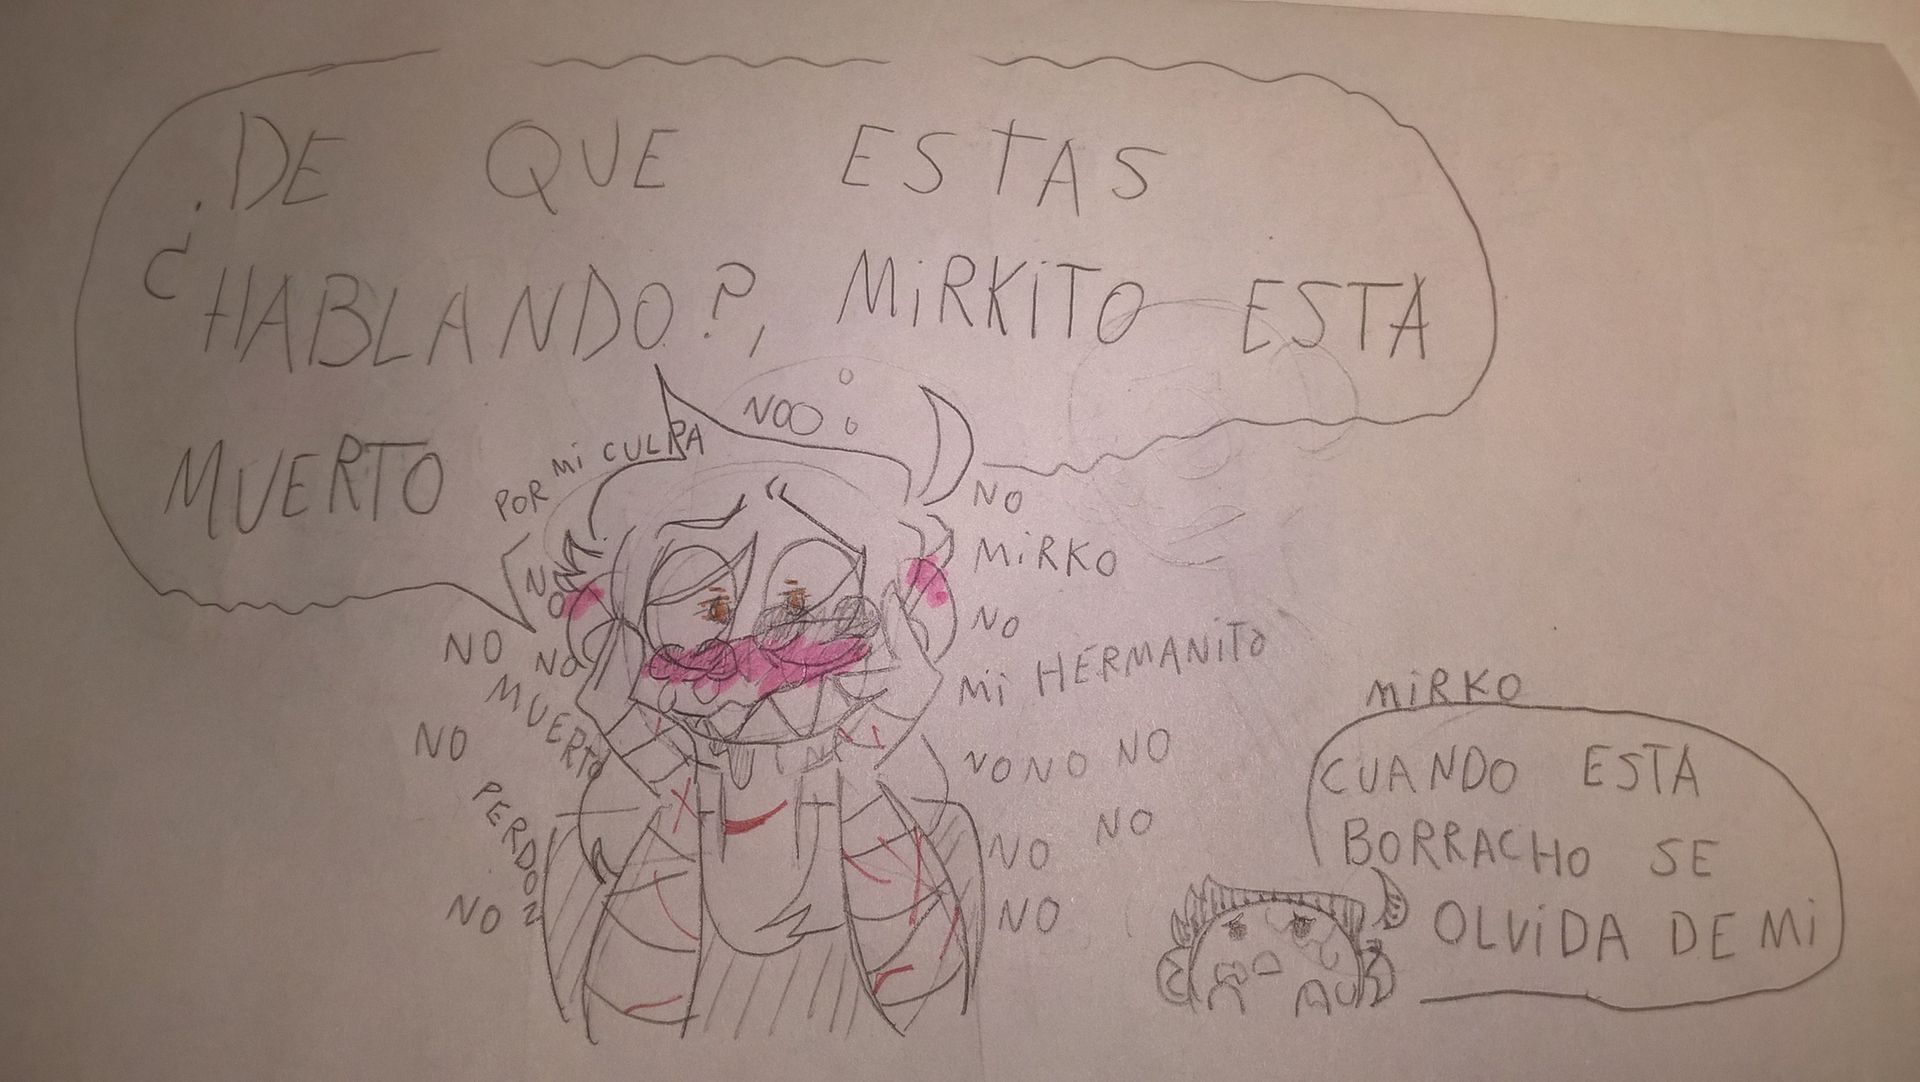 ¿DE QUE ESTAS
HABLANDO?, MiRKiTO ESTA
MUERTO
NOO
POR Mi CULPA
NO
MiRKO
NO
Mi HERMANiTO
NO NO NO
NO
NO
NO
NO
NO
NO
MUERTO
NO
PERDON
NO
MiRKO
CUANDO ESTA
BORRACHO SE
OLViDA DE Mi